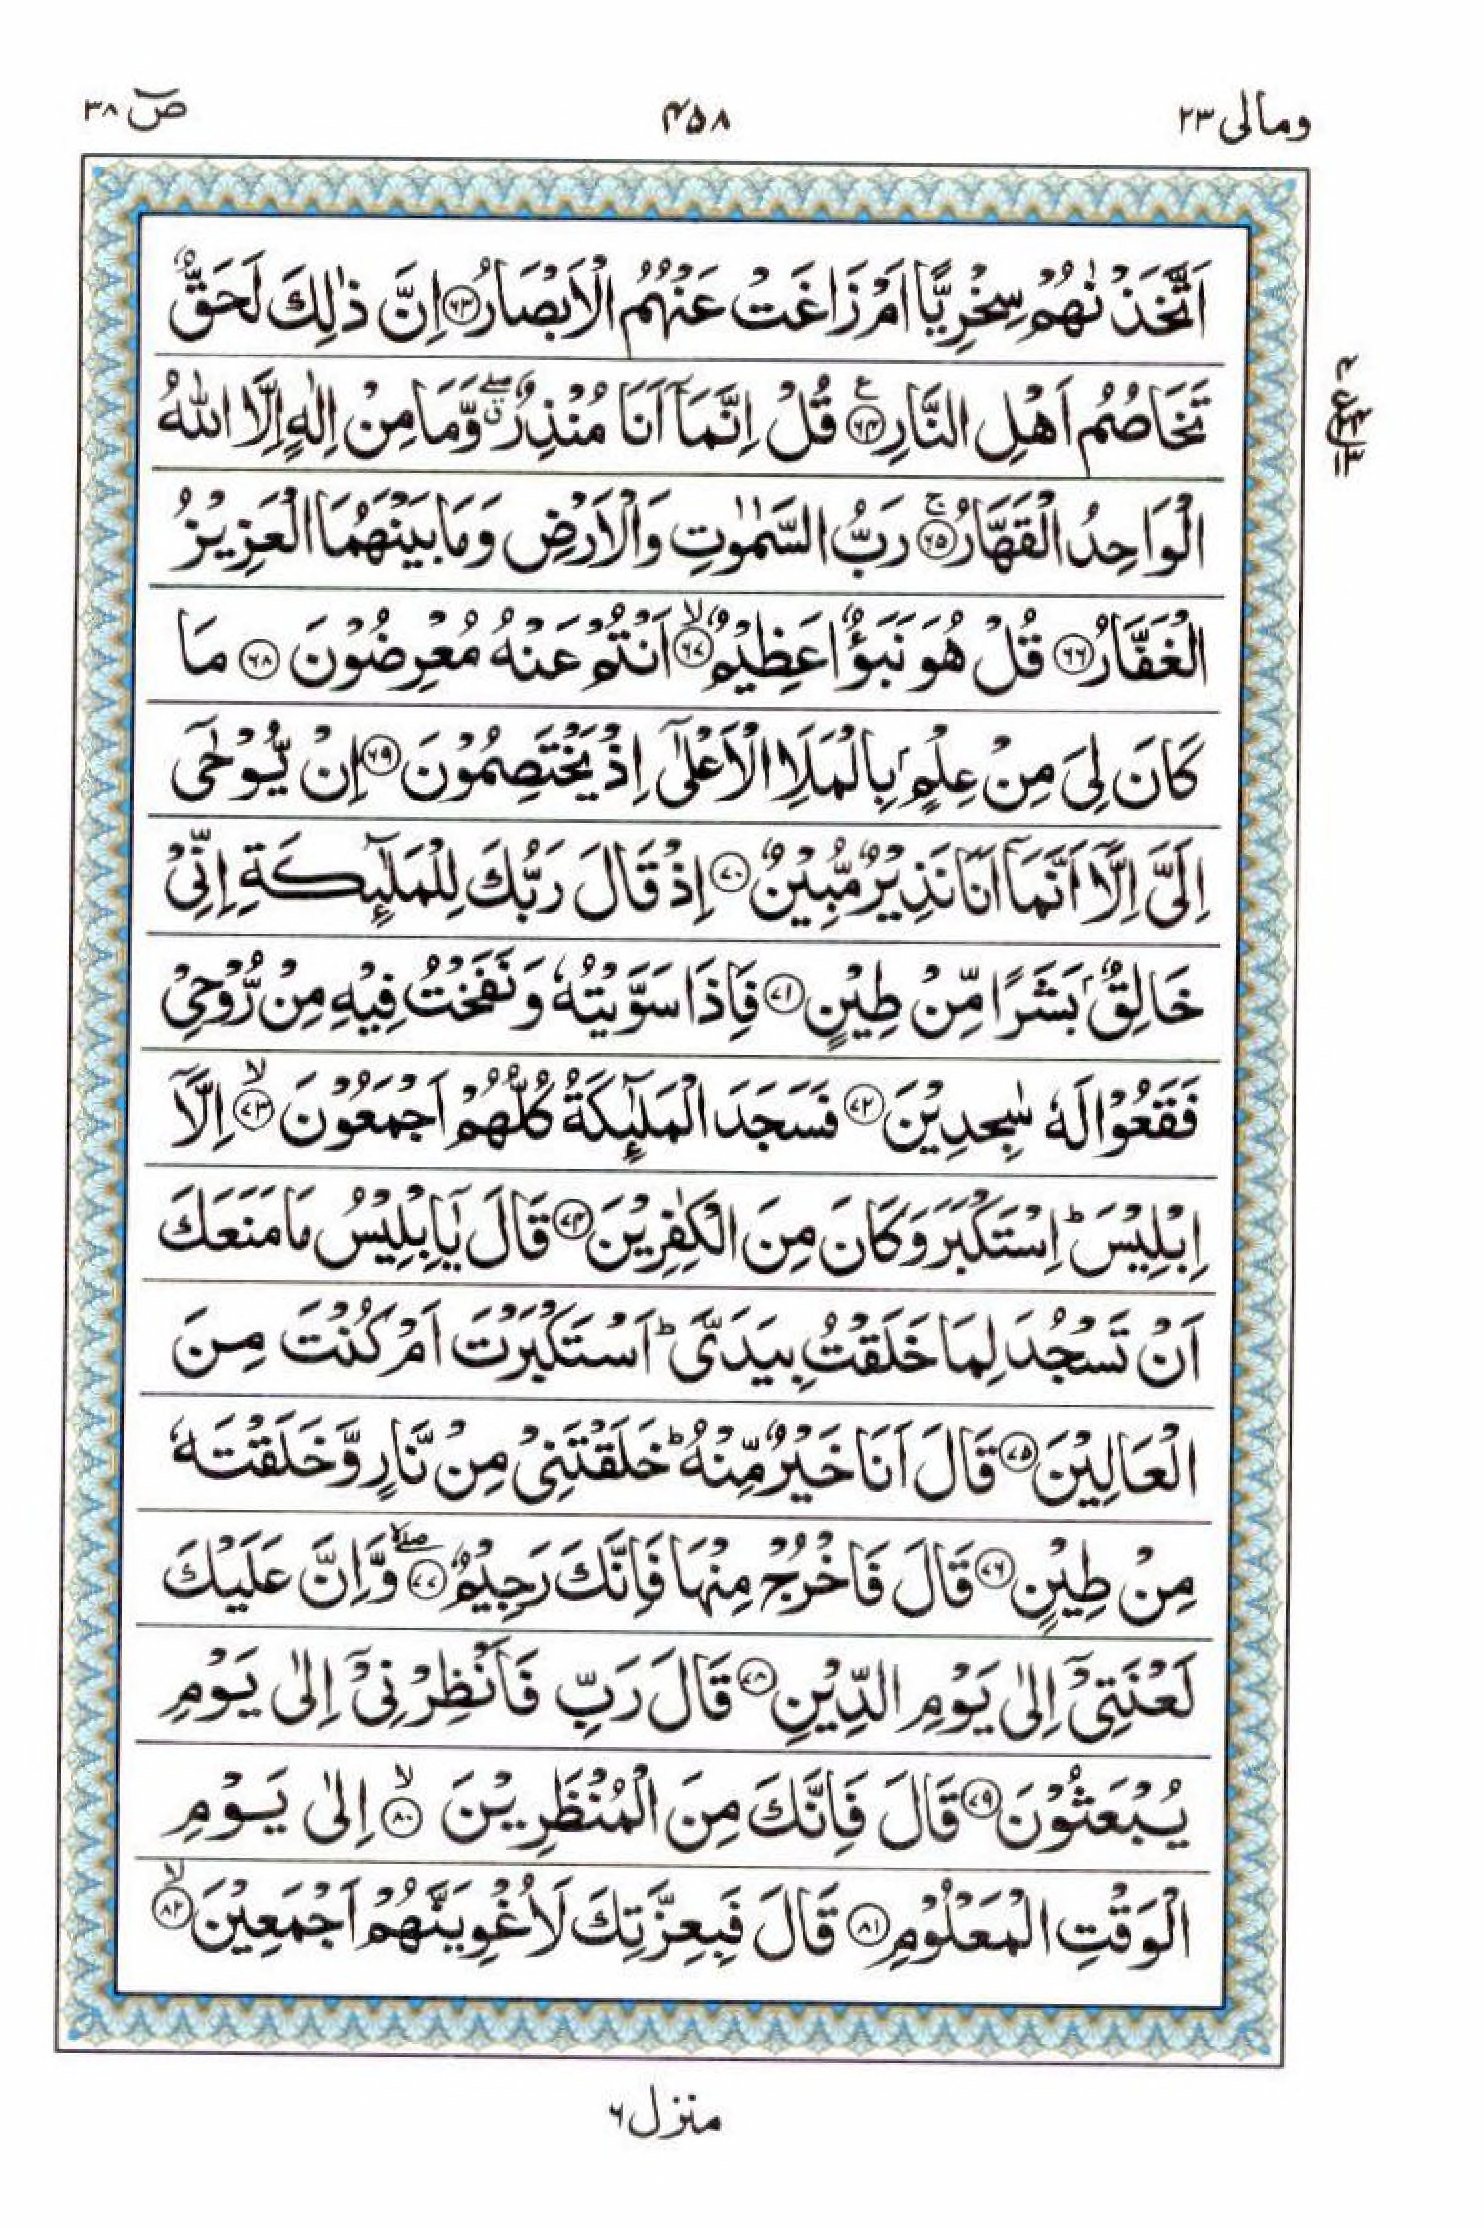 ومالی ۲۳
۴۵۸
صٓ ۳۸
اَتَّخَذْنٰهُمْ سِخْرِيًّا اَمْ زَاغَتْ عَنْهُمُ الْاَبْصَارُ ﴿۶۳﴾ اِنَّ ذٰلِكَ لَحَقٌّ
تَخَاصُمُ اَهْلِ النَّارِ ﴿۶۴﴾ ع قُلْ اِنَّمَاۤ اَنَا مُنْذِرٌ ۖق وَّمَا مِنْ اِلٰهٍ اِلَّا اللّٰهُ
الْوَاحِدُ الْقَهَّارُ ﴿۶۵﴾ۚ رَبُّ السَّمٰوٰتِ وَالْاَرْضِ وَمَا بَيْنَهُمَا الْعَزِيْزُ
الْغَفَّارُ ﴿۶۶﴾ قُلْ هُوَ نَبَؤٌا عَظِيْمٌ ﴿۶۷﴾ۙ اَنْتُمْ عَنْهُ مُعْرِضُوْنَ ﴿۶۸﴾ مَا
كَانَ لِيَ مِنْ عِلْمٍۭ بِالْمَلَاِ الْاَعْلٰۤى اِذْ يَخْتَصِمُوْنَ ﴿۶۹﴾ اِنْ يُّوْحٰۤى
اِلَيَّ اِلَّاۤ اَنَّمَاۤ اَنَا نَذِيْرٌ مُّبِيْنٌ ﴿۷۰﴾ اِذْ قَالَ رَبُّكَ لِلْمَلٰٓئِكَةِ اِنِّيْ
خَالِقٌۢ بَشَرًا مِّنْ طِيْنٍ ﴿۷۱﴾ فَاِذَا سَوَّيْتُهٗ وَنَفَخْتُ فِيْهِ مِنْ رُّوْحِيْ
فَقَعُوْا لَهٗ سٰجِدِيْنَ ﴿۷۲﴾ فَسَجَدَ الْمَلٰٓئِكَةُ كُلُّهُمْ اَجْمَعُوْنَ ﴿۷۳﴾ۙ اِلَّاۤ
اِبْلِيْسَ ؕ اِسْتَكْبَرَ وَكَانَ مِنَ الْكٰفِرِيْنَ ﴿۷۴﴾ قَالَ يٰۤاِبْلِيْسُ مَا مَنَعَكَ
اَنْ تَسْجُدَ لِمَا خَلَقْتُ بِيَدَيَّ ؕ اَسْتَكْبَرْتَ اَمْ كُنْتَ مِنَ
الْعَالِيْنَ ﴿۷۵﴾ قَالَ اَنَا خَيْرٌ مِّنْهُ ؕ خَلَقْتَنِيْ مِنْ نَّارٍ وَّخَلَقْتَهٗ
مِنْ طِيْنٍ ﴿۷۶﴾ قَالَ فَاخْرُجْ مِنْهَا فَاِنَّكَ رَجِيْمٌ ﴿۷۷﴾ۖۙ وَّاِنَّ عَلَيْكَ
لَعْنَتِيْۤ اِلٰى يَوْمِ الدِّيْنِ ﴿۷۸﴾ قَالَ رَبِّ فَاَنْظِرْنِيْۤ اِلٰى يَوْمِ
يُبْعَثُوْنَ ﴿۷۹﴾ قَالَ فَاِنَّكَ مِنَ الْمُنْظَرِيْنَ ﴿۸۰﴾ۙ اِلٰى يَوْمِ
الْوَقْتِ الْمَعْلُوْمِ ﴿۸۱﴾ قَالَ فَبِعِزَّتِكَ لَاُغْوِيَنَّهُمْ اَجْمَعِيْنَ ﴿۸۲﴾ۙ
منزل ۶